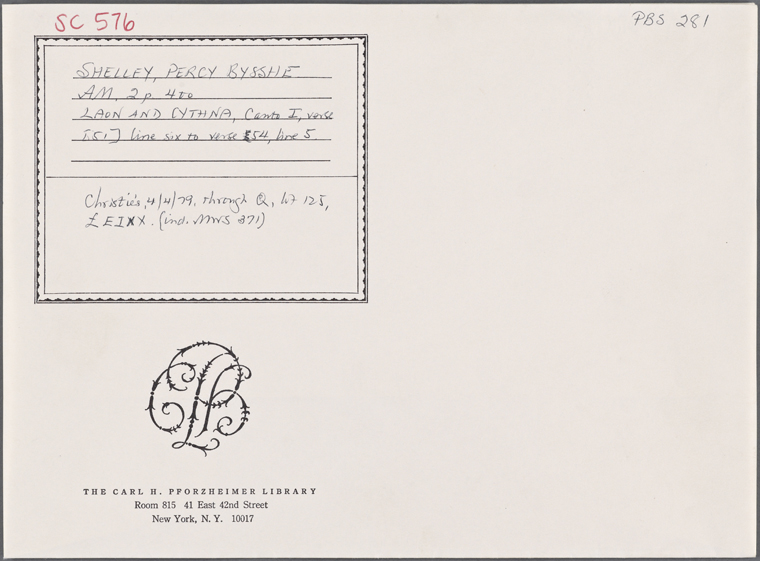 SC 576
PBS 281
SHELLEY, PERCY BYSSHE
AM, 2 p 4to
LAON AND CYTHNA, Canto I, verse
[51] line six to verse 54, line 5.
Christie's, 4/4/79, through Q, lot 125,
£ EIXX. (incl. MWS 371)
THE CARL H. PFORZHEIMER LIBRARY
Room 815 41 East 42nd Street
New York, N. Y. 10017